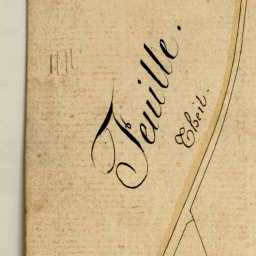 Feuille.
Theil.